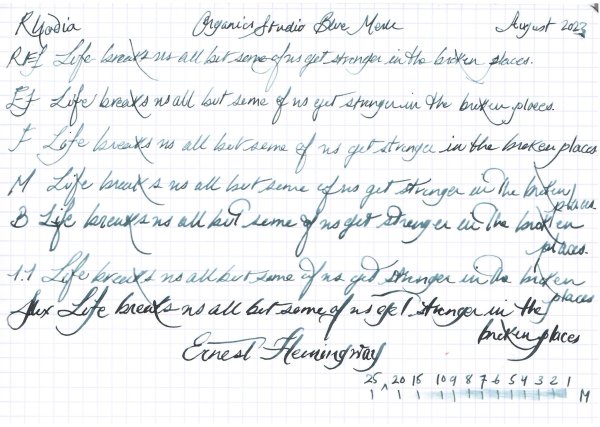 Rhodia Organics Studio Blue Merle August 2023
REF Life breaks us all but some of us get stronger in the broken places.
EF Life breaks us all but some of us get stronger in the broken places.
F Life breaks us all but some of us get stronger in the broken places
M Life breaks us all but some of us get stronger in the broken places.
B Life breaks us all but some of us get stronger in the broken places.
1.1 Life breaks us all but some of us get stronger in the broken places
flex Life breaks us all but some of us get stronger in the
broken places
Ernest Hemingway
25 20 15 10 9 8 7 6 5 4 3 2 1
M